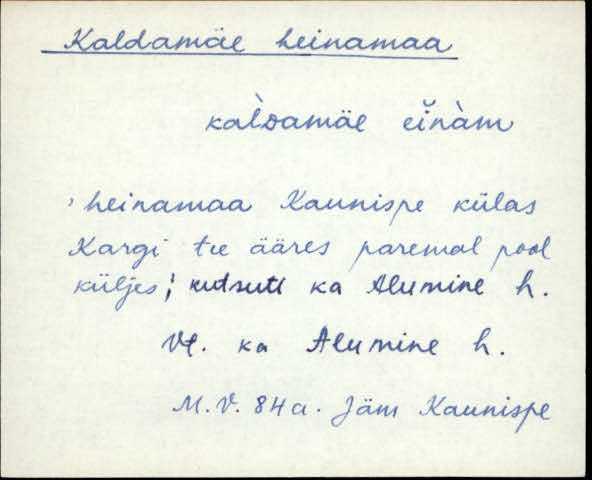 Kaldamäe heinamaa
kàlDamäe eĭnàm
, heinamaa Kaunispe külas
Kargi tee ääres paremal pool
küljes; kutsuti ka Alumine h.
Vt. ka Alumine h.
M.V. 84a. Jäm Kaunispe